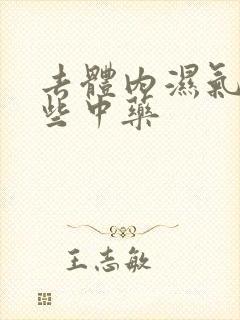 去體內濕氣
些中藥
王志敏